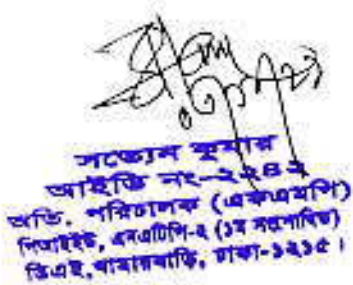 সত্যেন কুমার
আইডি নং-২২৪২
অতি. পরিচালক (একএমপি)
পিআইইউ, এনএটিপি-২ (১ম সংশোধিত)
ডিএই, খামারবাড়ি, ঢাকা-১২১৫।